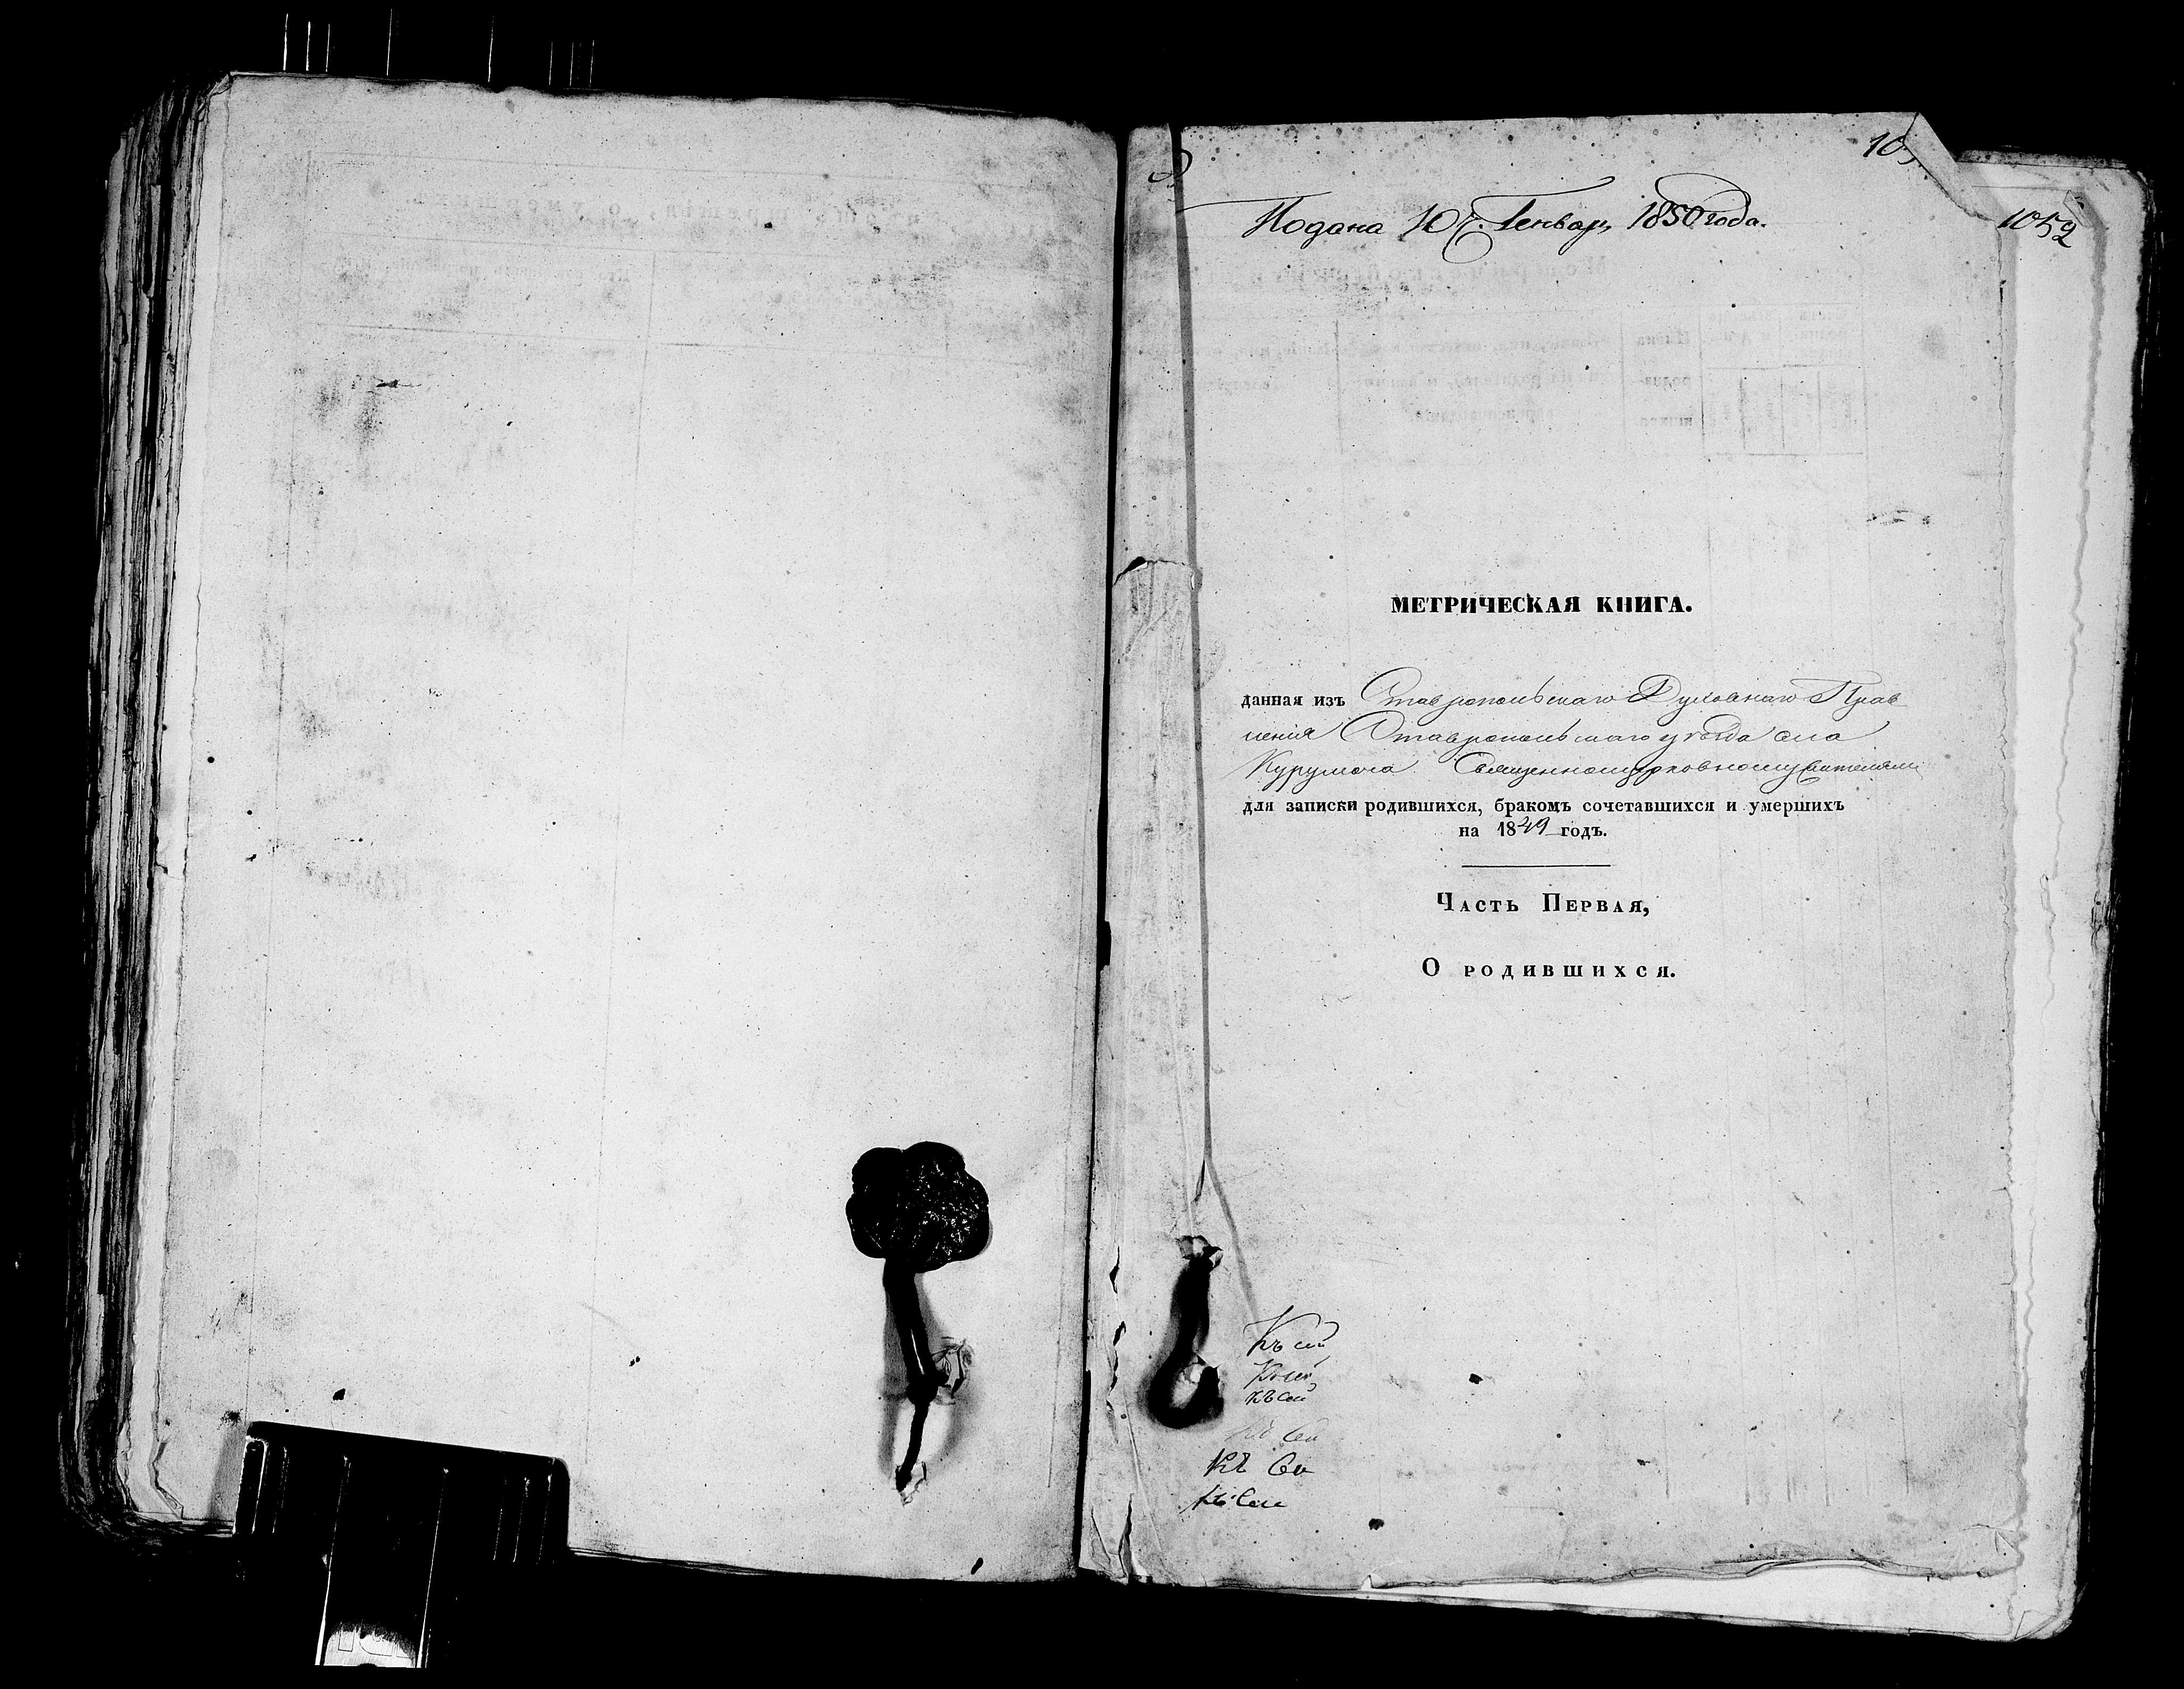 Подана 10 Генвар, 1850 года.
1052
МЕТРИЧЕСКАЯ КНИГА.
данная изъ Ставропольскаго Духовнаго Прав
ления Ставропольскаго уезда села
Курумоча Священноцерковнослужителями
для записки родившихся, бракомъ сочетавшихся и умершихъ
на 1849 годъ.
Часть Первая,
О родившихся.
Къ сей
Къ сей
Къ сей
Къ Се